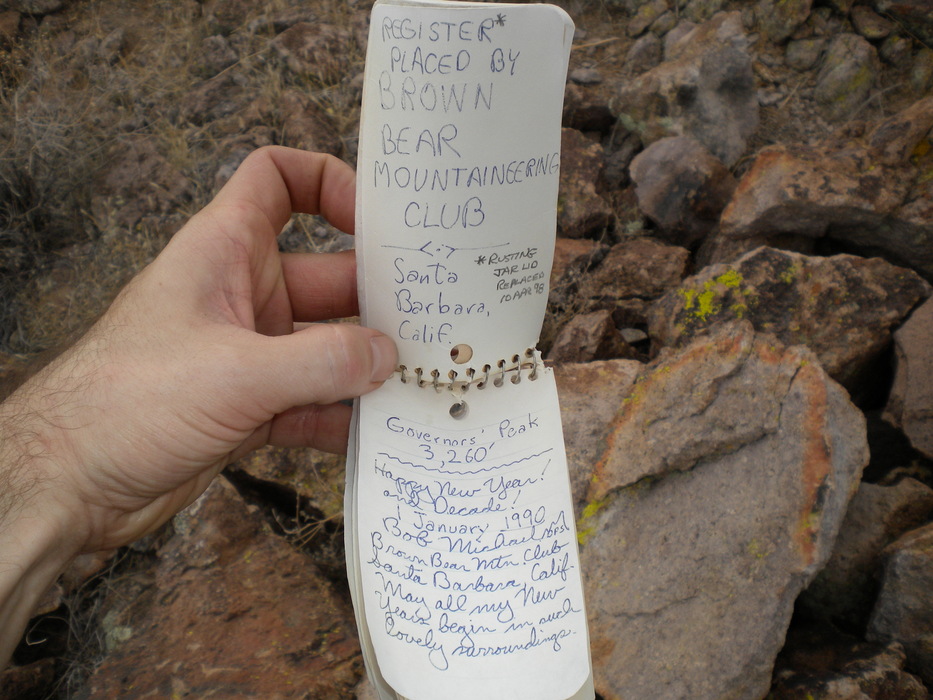 REGISTER*
PLACED BY
BROWN
BEAR
MOUNTAINEERING
CLUB
Santa
Barbara,
Calif.
*RUSTING
JAR LID
REPLACED
10 APR 98
Governors' Peak
3,260'
Happy New Year!
and Decade!
1 January 1990
Bob Michael
Brown Bear Mtn. Club
Santa Barbara, Calif.
May all my New
Years begin in such
lovely surroundings.